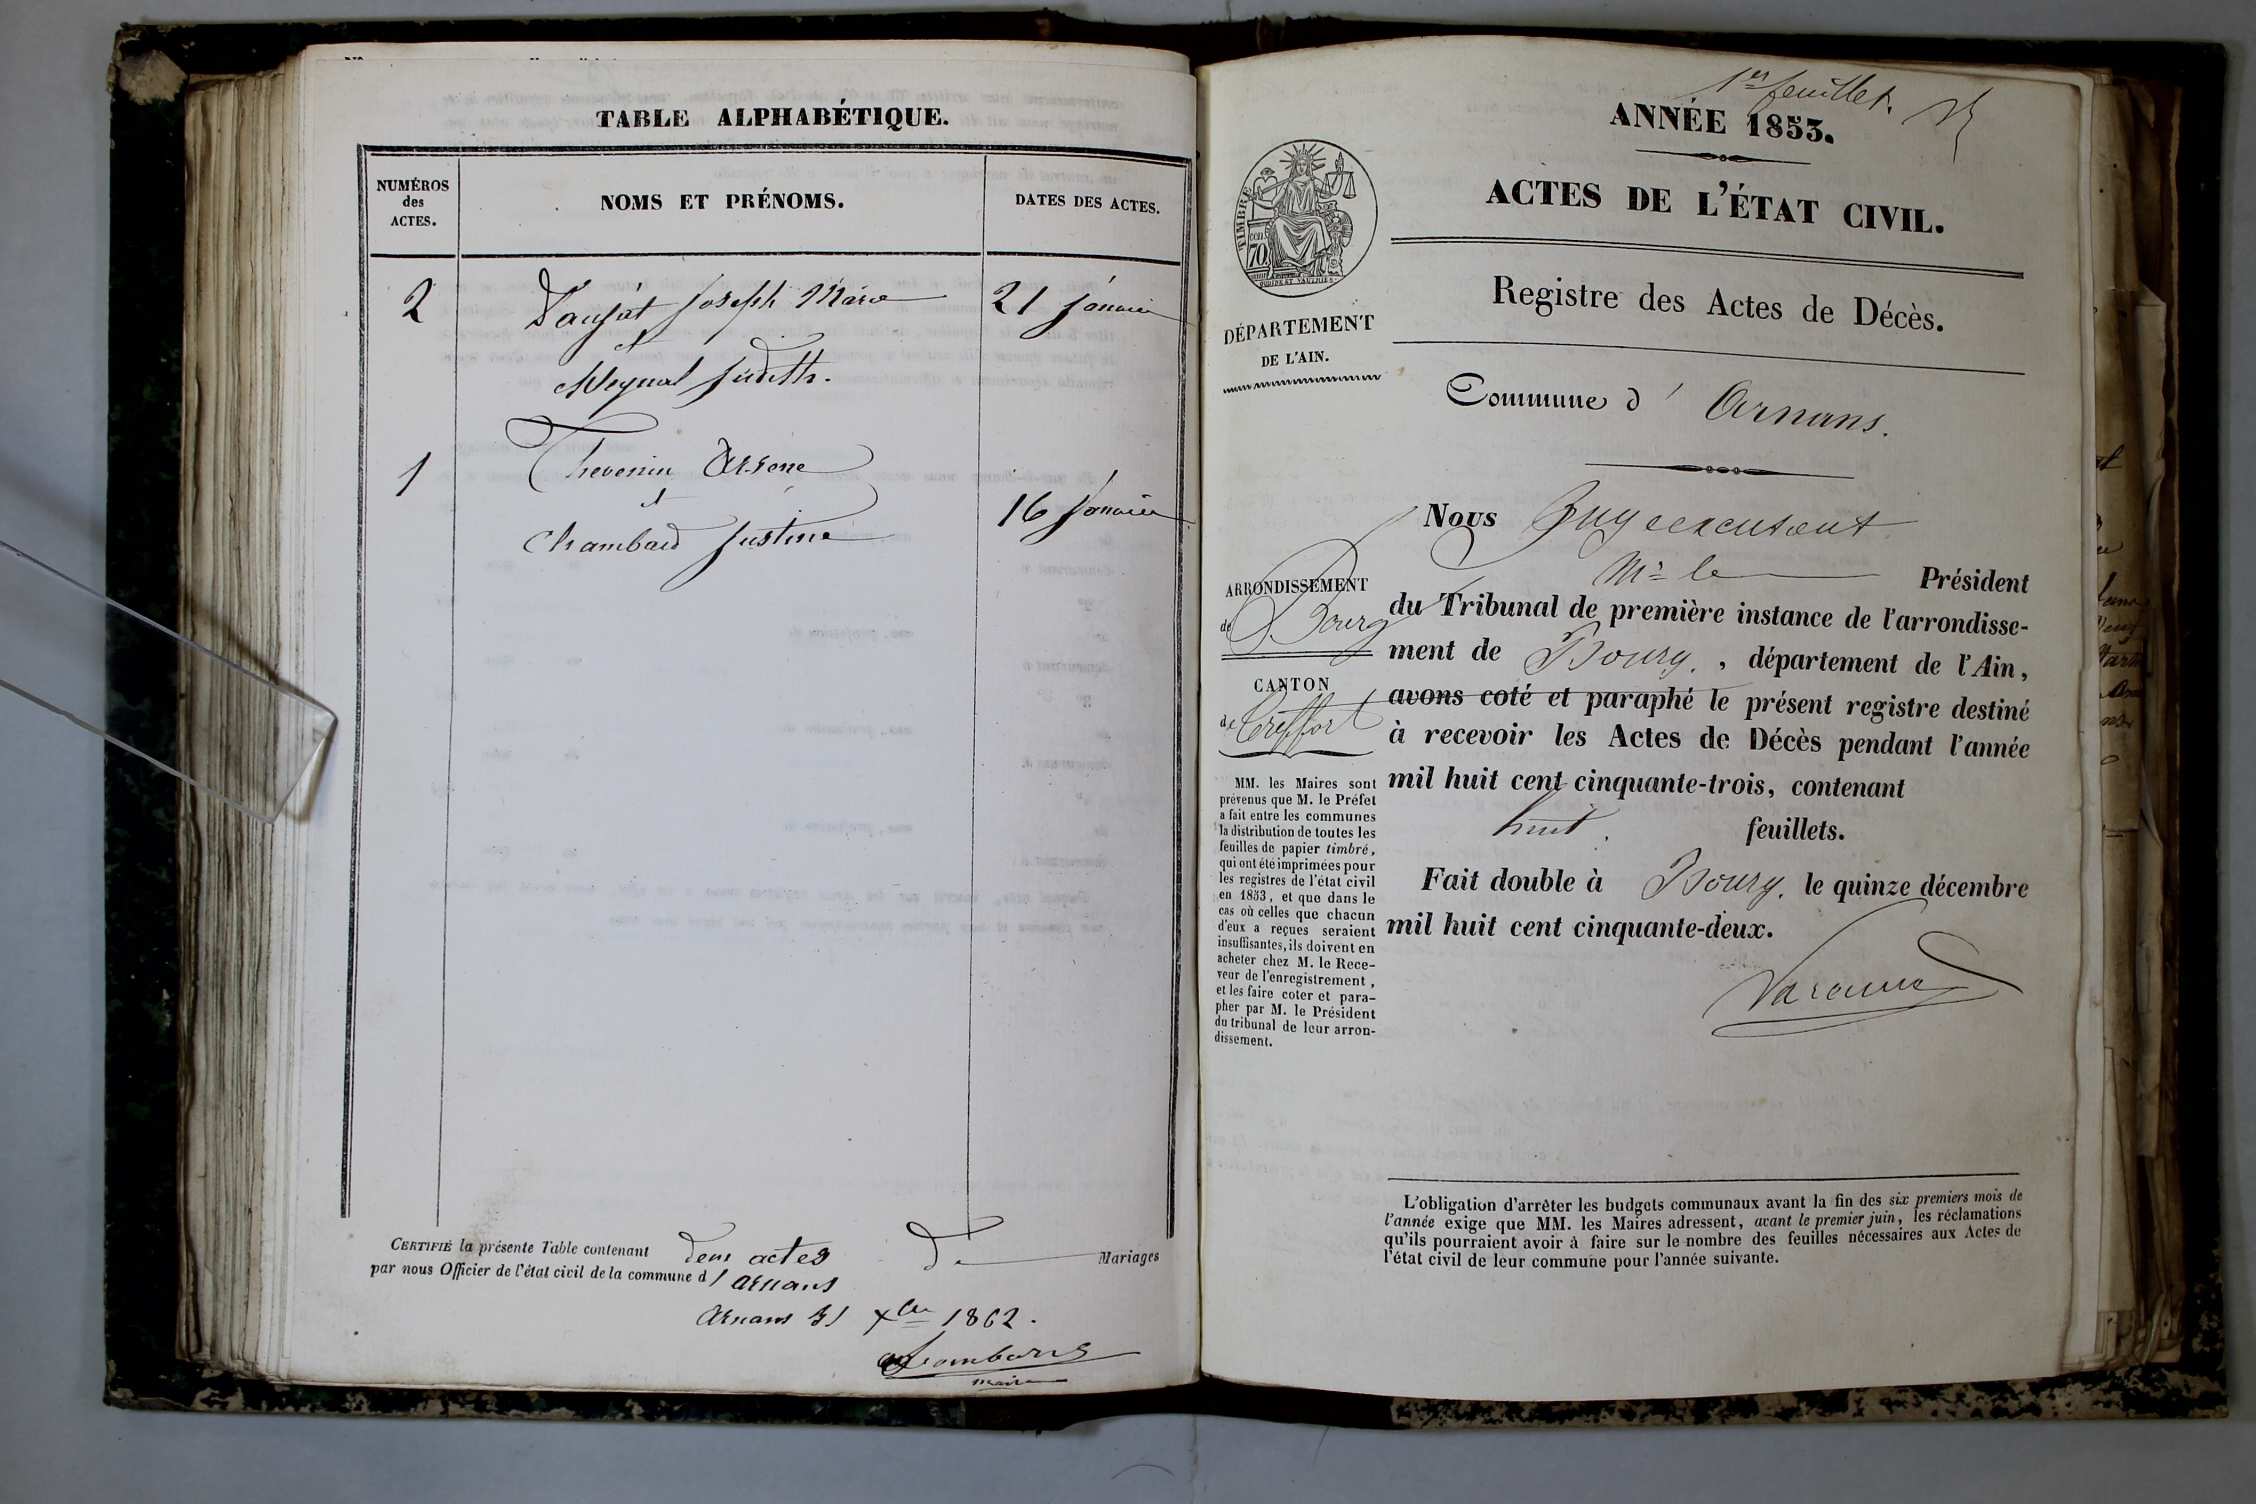 TABLE ALPHABÉTIQUE.
NUMÉROS
des
ACTES.
NOMS ET PRÉNOMS.
DATES DES ACTES.
2 Joseph Marie 21 janvier
et
Judith.
1 Thevenin Arsene
et
16 janvier
Chambard Justine
CERTIFIÉ la présente Table contenant deux actes de Mariages
par nous Officier de l'état civil de la commune d' Arnans
Arnans 31 Xbre 1862.
maire
1er feuillet.
ANNÉE 1853.
ACTES DE L'ÉTAT CIVIL.
Registre des Actes de Décès.
Commune d' Arnans.
TIMBRE
70
DÉPARTEMENT
DE L'AIN.
ARRONDISSEMENT
de Bourg
CANTON
de Treffort
MM. les Maires sont
prévenus que M. le Préfet
a fait entre les communes
la distribution de toutes les
feuilles de papier timbré,
qui ont été imprimées pour
les registres de l'état civil
en 1853, et que dans le
cas où celles que chacun
d'eux a reçues seraient
insuffisantes, ils doivent en
acheter chez M. le Rece-
veur de l'enregistrement,
et les faire coter et para-
pher par M. le Président
du tribunal de leur arron-
dissement.
Nous Juge
Mr le Président
du Tribunal de première instance de l'arrondisse-
ment de Bourg, département de l'Ain,
avons coté et paraphé le présent registre destiné
à recevoir les Actes de Décès pendant l'année
mil huit cent cinquante-trois, contenant
huit. feuillets.
Fait double à Bourg. le quinze décembre
mil huit cent cinquante-deux.
L'obligation d'arrêter les budgets communaux avant la fin des six premiers mois de
l'année exige que MM. les Maires adressent, avant le premier juin, les réclamations
qu'ils pourraient avoir à faire sur le nombre des feuilles nécessaires aux Actes de
l'état civil de leur commune pour l'année suivante.